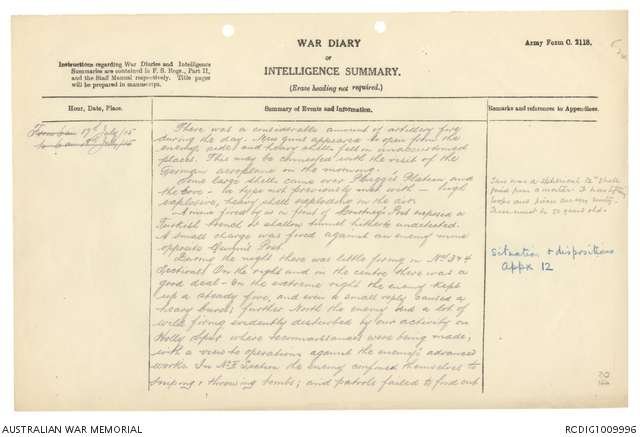 WAR DIARY
or
INTELLIGENCE SUMMARY.
(Erase heading not required.)
Army Form C. 2118.
Instructions regarding War Diaries and Intelligence
Summaries are contained in F. S. Regs., Part II,
and the Staff Manual respectively. Title pages
will be prepared in manuscript.
Hour, Date, Place.
Summary of Events and Information.
Remarks and references to Appendices.
From 6 am 17th July/15
to 6 am 18th July/15
There was a considerable amount of artillery fire
during the day. New guns appeared to open from the
enemy side and heavy shells fell in unaccustomed
places. This may be connected with the visit of the
German aeroplane in the morning.
Some large shells came over Plugge's Plateau and
the Cove - in type not previously met with - high
explosive, heavy shell exploding in the air.
A mine fired by us in front of Courtney's Post exposed a
Turkish trench to shallow tunnel hitherto undetected.
A small charge was fired against an enemy mine
opposite Quinn's Post.
During the night there was little firing in No 3 & 4
Sections. On the right and in the centre there was a
good deal - On the extreme right the enemy kept
up a steady fire, and even a small reply caused a
heavy burst; further North the enemy did a lot of
wild firing evidently disturbed by our activity on
Holly Spur where reconnaissances were being made,
with a view to operations against the enemy's advanced
works. In No 4 Section the enemy confined themselves to
sniping & throwing bombs; and patrols failed to find out
This was a spherical 12" shell
fired from a mortar.
Situation & dispositions
Appx 12
AUSTRALIAN WAR MEMORIAL
RCDIG1009996